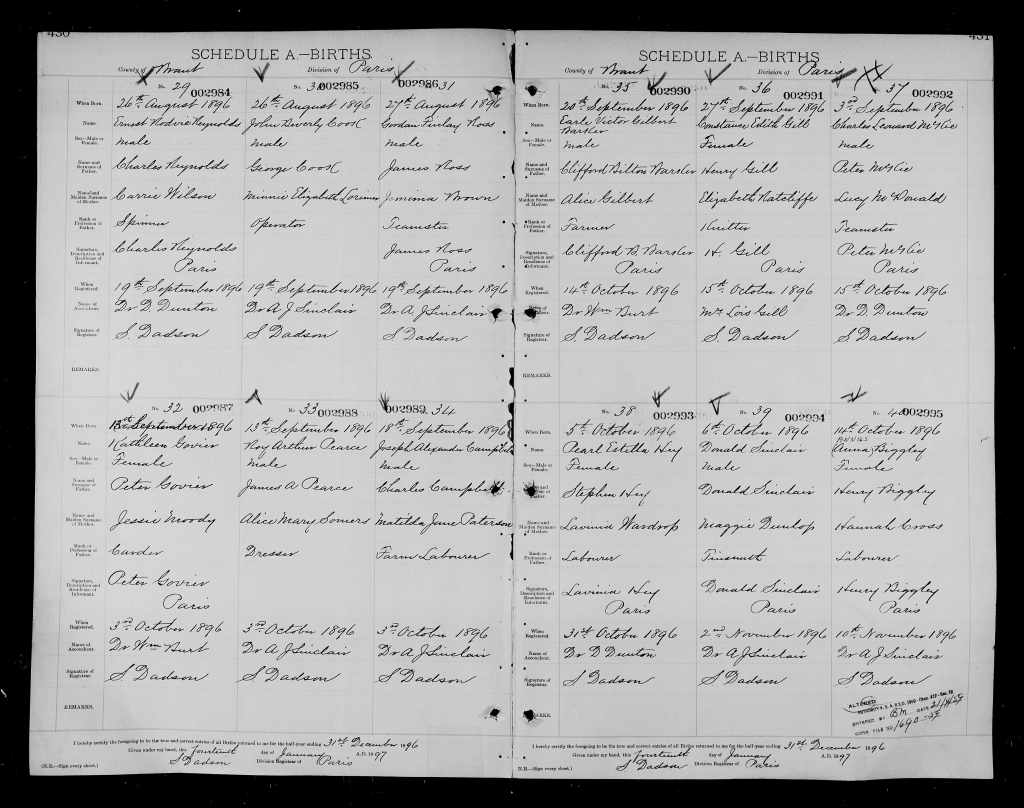 430
SCHEDULE A.—BIRTHS
County of Brant Division of Paris
No. 29 002984 No. 30 002985 002986 31
When Born. 26th August 1896 26th August 1896 27th August 1896
Name Ernest Reynolds John Beverly Cook Gordon Finlay Ross
Sex—Male or Female. Male Male Male
Name and Surname of Father. Charles Reynolds George Cook James Ross
Name and Maiden Surname of Mother. Carrie Wilson Minnie Elizabeth Jemima Brown
Rank or Profession of Father. Spinner Operator Teamster
Signature, Description and Residence of Informant. Charles Reynolds James Ross
Paris Paris
When Registered. 19th September 1896 19th September 1896 19th September 1896
Name of Accoucheur. Dr D. Dunton Dr A J Sinclair Dr A. J Sinclair
Signature of Registrar. S. Dadson S Dadson S Dadson
REMARKS.
No. 32 002987 No. 33 002988 002989 34
When Born. September 1896 13th September 1896 18th September 1896
Name Kathleen Govier Roy Arthur Pearce Joseph Alexander Campbell
Sex—Male or Female. Female Male Male
Name and Surname of Father. Peter Govier James A Pearce Charles Campbell
Name and Maiden Surname of Mother. Jessie Moody Alice Mary Somers Matilda Jane Paterson
Rank or Profession of Father. Carder Dresser Farm Labourer
Signature, Description and Residence of Informant. Peter Govier
Paris
When Registered. 3rd October 1896 3rd October 1896 3rd October 1896
Name of Accoucheur. Dr Wm Burt Dr A J Sinclair Dr A J Sinclair
Signature of Registrar. S Dadson S Dadson S Dadson
REMARKS.
I hereby certify the foregoing to be the true and correct entries of all Births returned to me for the half-year ending 31st December 1896
Given under my hand, this fourteenth day of January A.D. 1897
S Dadson Division Registrar of Paris
(N.B.—Sign every sheet.)
431
SCHEDULE A.—BIRTHS
County of Brant Division of Paris
No. 35 002990 No. 36 002991 37 002992
When Born. September 1896 27th September 1896 3rd September 1896
Name Earle Victor Gilbert Barker Constance Edith Gill Charles Leonard McKie
Sex—Male or Female. Male Female Male
Name and Surname of Father. Clifford Bilton Barker Henry Gill Peter McKie
Name and Maiden Surname of Mother. Alice Gilbert Elizabeth Ratcliffe Lucy McDonald
Rank or Profession of Father. Farmer Knitter Teamster
Signature, Description and Residence of Informant. Clifford B. Barker H. Gill Peter McKie
Paris Paris Paris
When Registered. 14th October 1896 15th October 1896 15th October 1896
Name of Accoucheur. Dr Wm Burt Mrs Lois Gill Dr D. Dunton
Signature of Registrar. S. Dadson S. Dadson S Dadson
REMARKS.
No. 38 002993 No. 39 002994 No. 40 002995
When Born. 5th October 1896 6th October 1896 14th October 1896
Name Pearl Estella Hey Donald Sinclair Anna Biggley
Sex—Male or Female. Female Male Female
Name and Surname of Father. Stephen Hey Donald Sinclair Henry Biggley
Name and Maiden Surname of Mother. Lavinia Wardrop Maggie Dunlop Hannah Cross
Rank or Profession of Father. Labourer Tinsmith Labourer
Signature, Description and Residence of Informant. Lavinia Hey Donald Sinclair Henry Biggley
Paris Paris Paris
When Registered. 31st October 1896 2nd November 1896 10th November 1896
Name of Accoucheur. Dr D Dunton Dr A J Sinclair Dr A. J Sinclair
Signature of Registrar. S Dadson S Dadson S Dadson
REMARKS.
ALTERED
I hereby certify the foregoing to be the true and correct entries of all Births returned to me for the half-year ending 31st December 1896
Given under my hand, this fourteenth day of January A.D. 1897
S Dadson Division Registrar of Paris
(N.B.—Sign every sheet.)